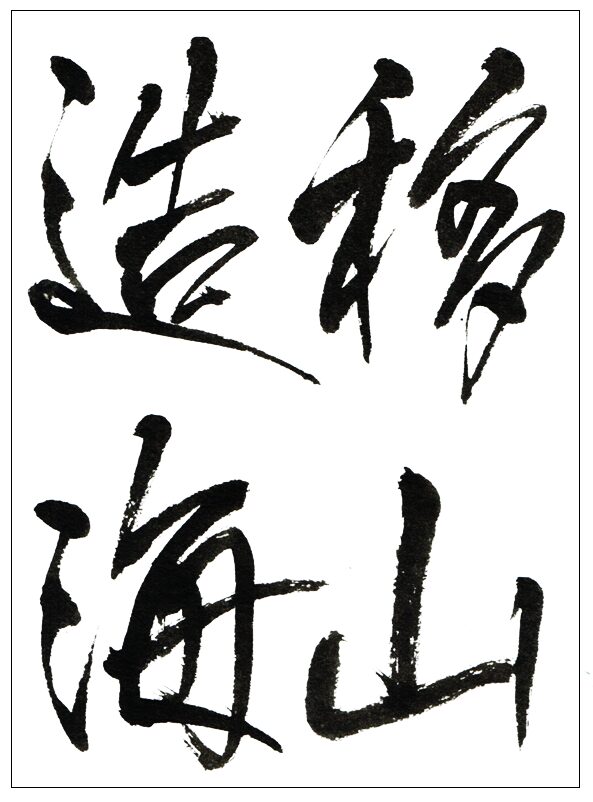 移山
造海